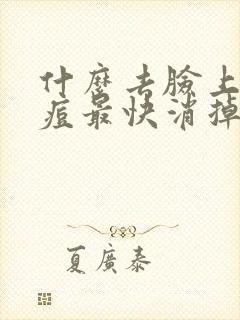 什麼去臉上
痘最快消掉
夏廣泰